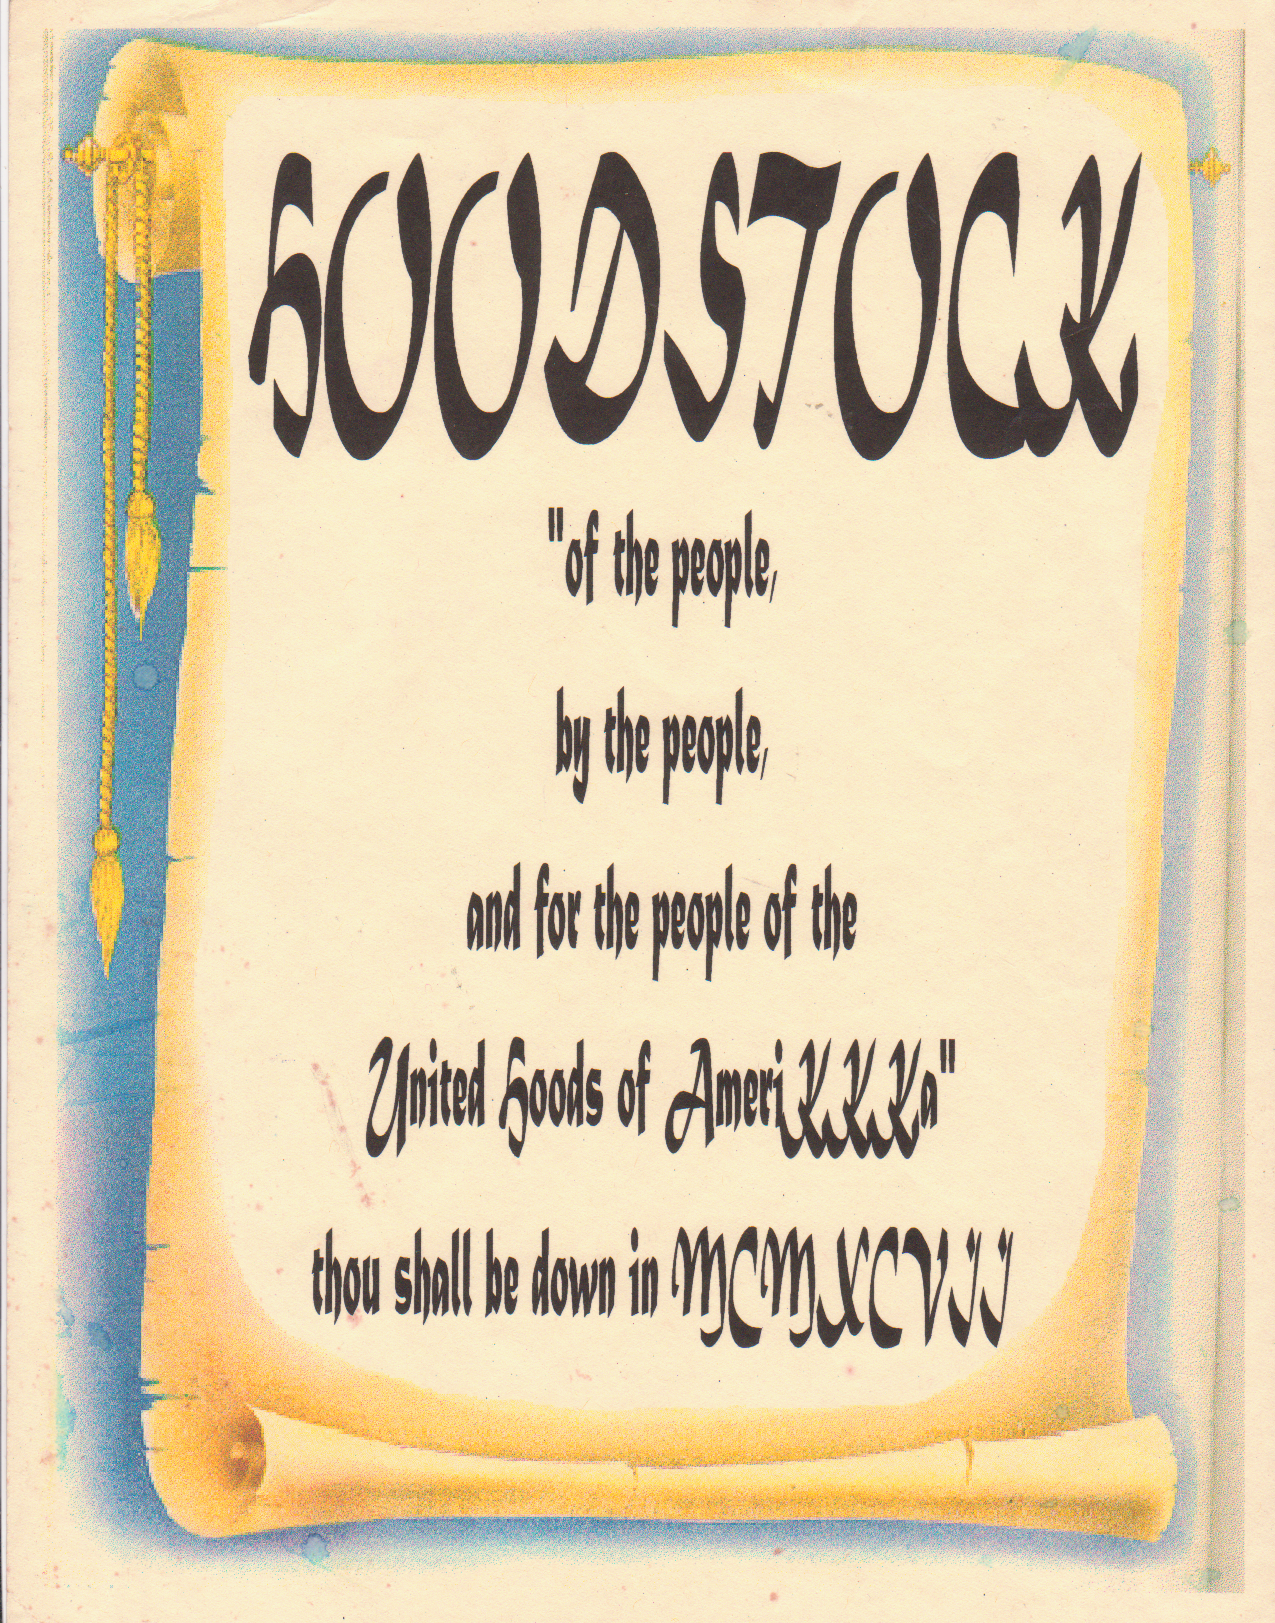 HOODSTOCK
"of the people,
by the people,
and for the people of the
United Hoods of AmeriKKKa"
thou shall be down in MCMXCVII